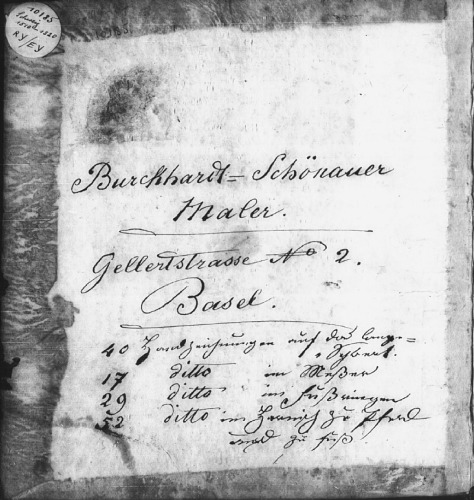 10185
RY/EY
Burckhardt=Schönauer
Maler.
Gellertstrasse No 2.
Basel.
40 Handzeichnungen auf das lange=
17 ditto im Meßer
29 ditto im Fußringen
52 ditto im Harnisch zu Pferd
und zu Fuß